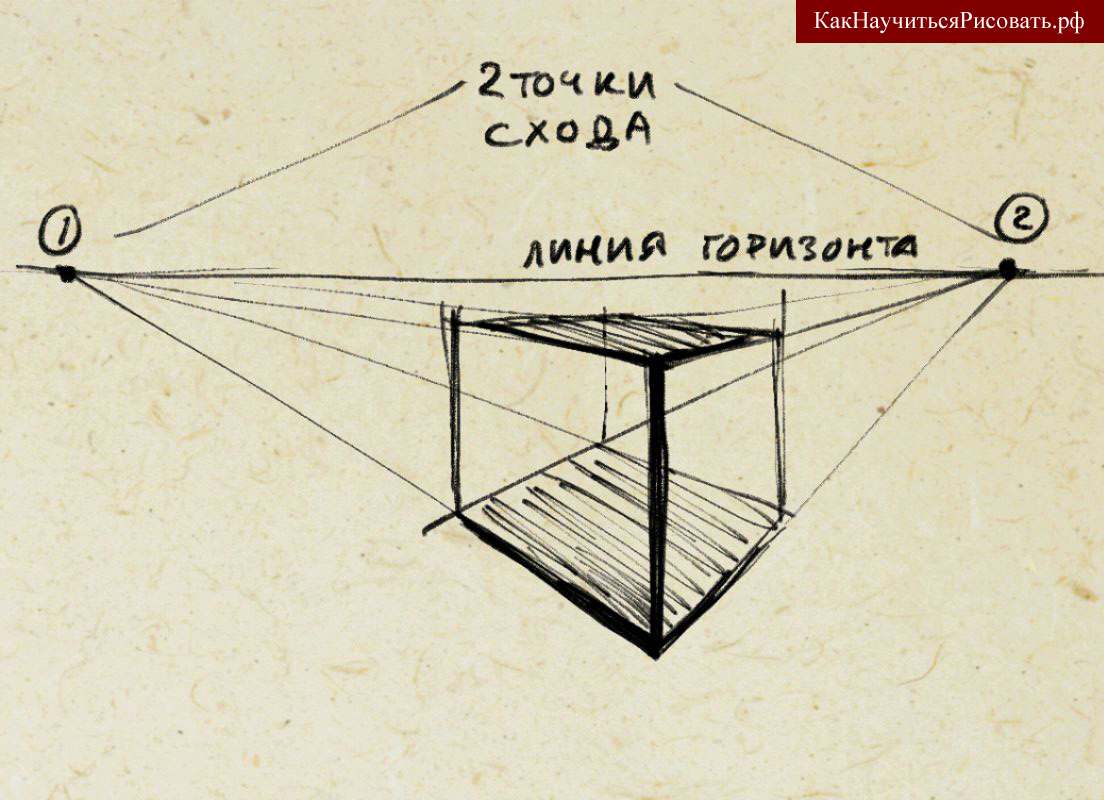 КакНаучитьсяРисовать.рф
2 ТОЧКИ
СХОДА
1
2
ЛИНИЯ ГОРИЗОНТА